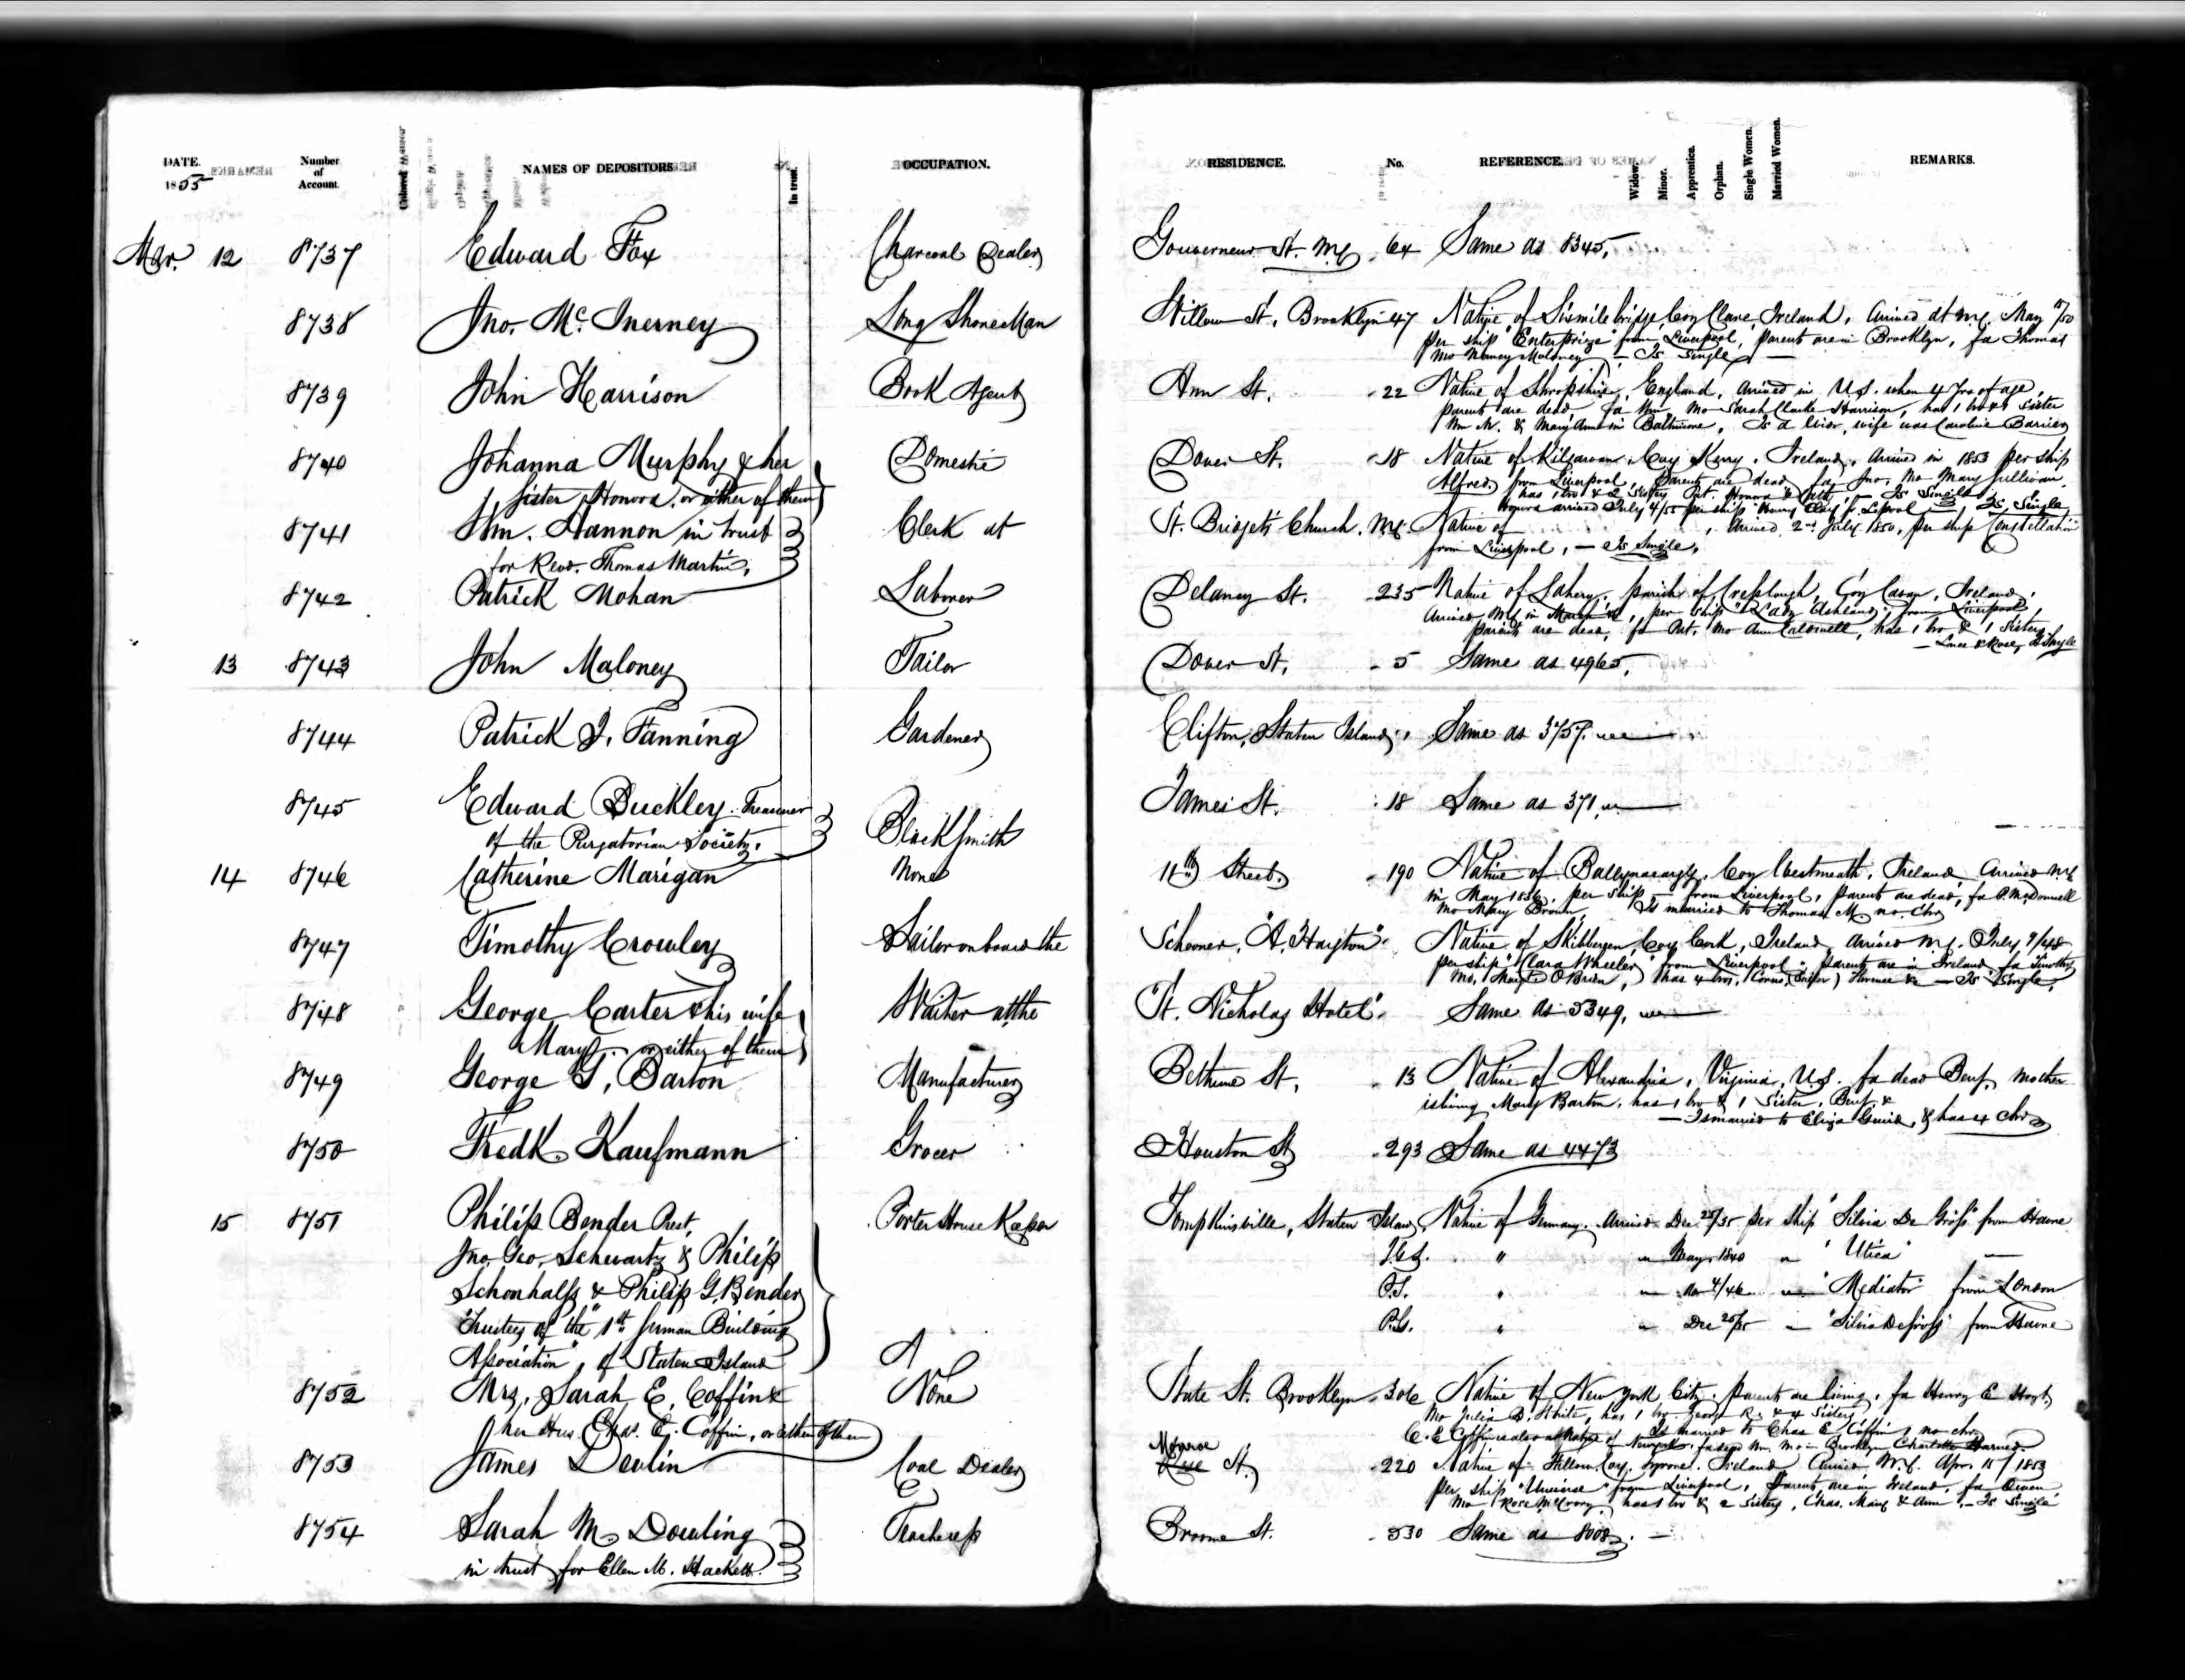 DATE. Number of Account. NAMES OF DEPOSITORS In trust. OCCUPATION. RESIDENCE. No. REFERENCE. Widow. Minor. Apprentice. Orphan. Single Women. Married Women. REMARKS.
1855
Mar. 12 8737 Edward Fox Charcoal Dealer Gouverneur St. N.Y. 64 Same as 8345.
8738 Jno. Mc. Inerney Long Shore Man Willow St. Brooklyn 47 Native of Sixmilebridge, Coy Clare, Ireland, Arrived at N.Y. May /50
per ship "Enterprize" from Liverpool, parents are in Brooklyn, fa Thomas
mo Nancy Maloney — Is Single —
8739 John Harrison Book Agent Ann St. 22 Native of Shropshire, England, arrived in U.S. when 4 Yrs of age,
parents are dead, fa Wm mo Sarah Clarke Harrison, has 1 bro & 1 Sister
Wm N. & Mary Ann in Baltimore, Is a Wid, wife was Caroline
8740 Johanna Murphy & her Domestic Dover St. 18 Native of Kilgarvan, Coy Kerry, Ireland, Arrived in 1853 per ship
sister Honora, or either of them
Alfred, from Liverpool, Parents are dead, fa Jno, Mo Mary Sullivan,
has 1 bro & 2 Sisters Pat. Honora & Cath, — Is Single
Honora arrived July 4/55 per ship Henry Clay f. L.pool — Is Single
8741 Wm. Hannon in trust Clerk at St. Bridget's Church. N.Y. Native of , Arrived 2nd July 1850, per ship Constellation
for Revd. Thomas Martin, from Liverpool, — Is Single,
8742 Patrick Mohan Laborer Delancy St. 235 Native of parish of Coy Cavan, Ireland,
Arrived N.Y. in March per ship "Lady Ashland" from Liverpool
parents are dead, fa Pat. mo Ann Caldwell, has 1 bro & 1 Sister
& Rose, Is Single
13 8743 John Maloney Tailor Dover St. 5 Same as 4965.
8744 Patrick J. Fanning Gardener Clifton, Staten Island, Same as 3757.
8745 Edward Buckley Treasurer Blacksmith James St. 18 Same as 371.
of the Purgatorian Society.
14 8746 Catherine Marigan None 11th Street. 190 Native of Coy Westmeath, Ireland, Arrived N.Y.
in May 1836, per ship — from Liverpool, parents are dead, fa P. McDonnell
mo Mary Brown, Is married to Thomas M no chn
8747 Timothy Crowley Sailor on board the Schooner, "A. Hayton". Native of Skibbereen, Coy Cork, Ireland, arrived N.Y. July 9/48
per ship "Clara Wheeler" from Liverpool, parents are in Ireland, fa Timothy
mo, Mary O'Brien, has 4 bros, Corns, (Sailor) Florence & — Is Single.
8748 George Carter & his wife Waiter at the St. Nicholas Hotel. Same as 5349,
Mary, or either of them
8749 George G. Barton Manufacturer Bethune St. 13 Native of Alexandria, Virginia, U.S. fa dead Benj. Mother
is living Mary Barton, has 1 bro & 1 Sister, Benj. &
— Is married to Eliza & has 4 chn
8750 Fredk. Kaufmann Grocer Houston St 293 Same as 4473
15 8751 Philip Bender Prest, Porter House Keeper Tompkinsville, Staten Island, Native of Germany. Arrived Dec 25/35 per Ship "Silvia De Grass" from Havre
Jno. Geo. Schwartz & Philip J.G.S. " " May 1840 " "Utica" —
Schonhalfs & Philip G. Bender P.S. " " 4/46 "Mediator" from London
Trustees of the "1st German Building P.G. " " Dec 25/35 — "Silvia De Grass" from Havre
Association", of Staten Island
8752 Mrs, Sarah E. Coffin & None State St. Brooklyn 306 Native of New York City, parents are living, fa Henry E Hoyt,
her Hus. Chas. E. Coffin, or either of them
mo Julia B. White, has 1 bro. George R. & 4 Sisters
Is married to Chas E. Coffin, no chn
C. E Coffin is also a Native of fa dead Wm, Mo in Brooklyn Charlotte
8753 James Devlin Coal Dealer Monroe St. 220 Native of Coy. Tyrone. Ireland Arrived N.Y. Apr. 15/1853
per ship "Universe" from Liverpool, Parents are in Ireland, fa Owen
mo Rose McCrory, has 1 bro & 2 Sisters, Chas. Mary & Ann, — Is Single
8754 Sarah M. Dowling Teacheress Broome St. 530 Same as 8008. —
in trust for Ellen M. Hackett.